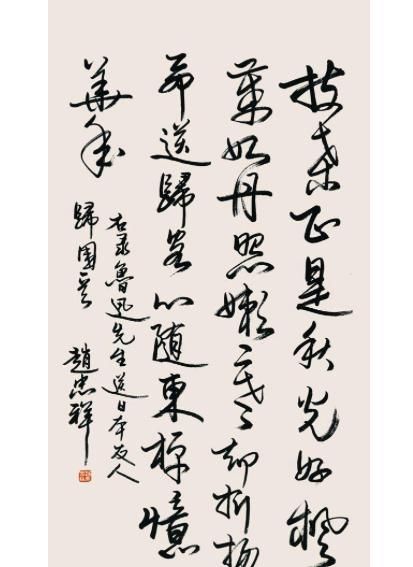 扶桑正是秋光好楓
葉如丹照嫩寒却折楊
送歸客心隨東棹憶
華年
右录魯迅先生送日本友人
歸國
趙忠祥